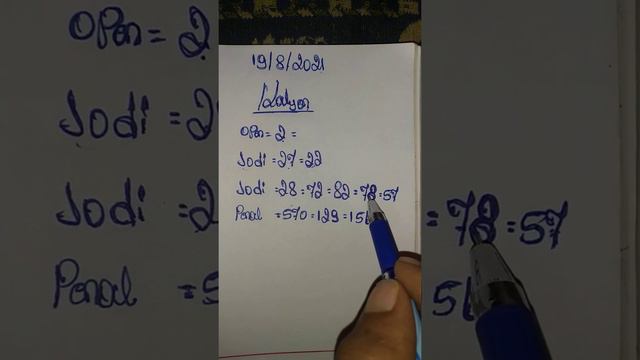 19/8/2021
Kalyan
OPen = 2 =
Jodi = 27 = 22
Jodi = 28 = 72 = 82 = 78 = 57
Penal = 570 = 129 = 156